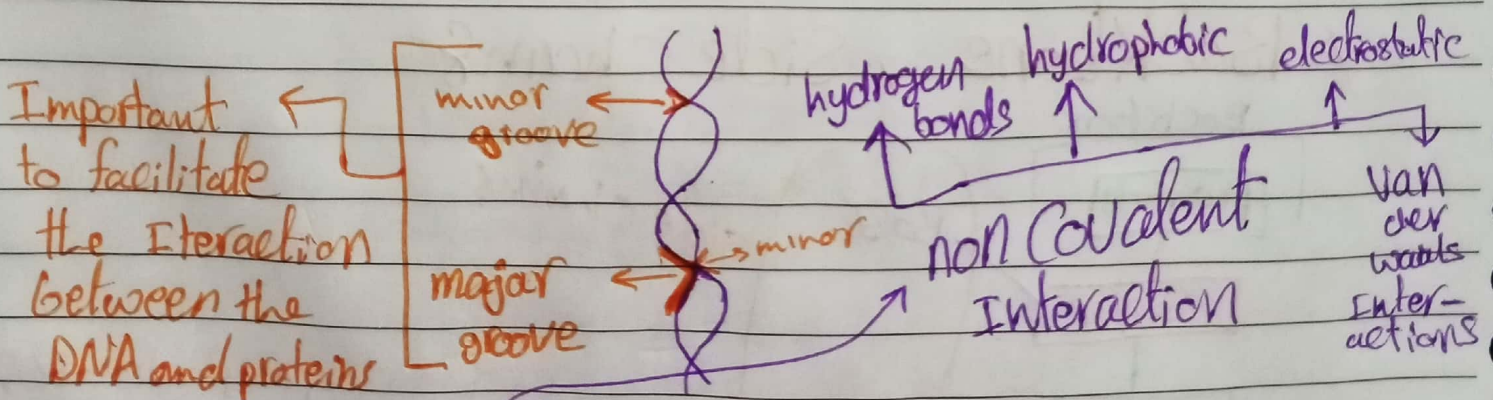 Important
to facilitate
the Iteraction
between the
DNA and proteins
minor
groove
major
groove
minor
hydrogen
bonds
hydrophobic
electrostatic
non Covalent
Interaction
van
der
waals
Inter-
actions